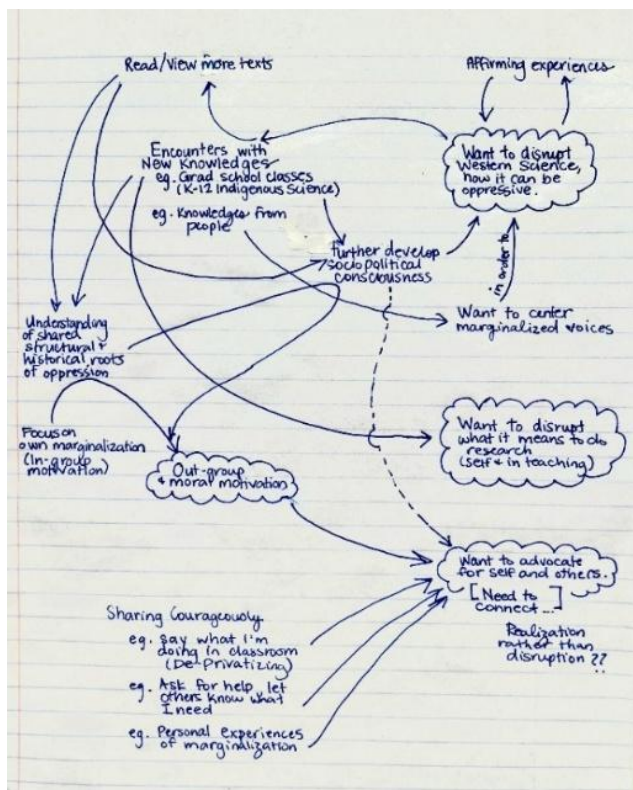 Read/View more texts
Affirming experiences
Encounters with
New Knowledges
eg. Grad school classes
(K-12 Indigenous Science)
eg. Knowledges from
people
Want to disrupt
Western Science,
how it can be
oppressive.
further develop
sociopolitical
consciousness
in order to
Want to center
marginalized voices
Understanding
of shared
structural +
historical roots
of oppression
Focus on
own marginalization
(In-group
motivation)
Out-group
+ moral motivation
Want to disrupt
what it means to do
research
(self + in teaching)
Want to advocate
for self and others.
[Need to
connect...]
Realization
rather than
disruption??
Sharing Courageously
eg. Say what I'm
doing in classroom
(De-Privatizing)
eg. Ask for help let
others know what
I need
eg. Personal experiences
of marginalization